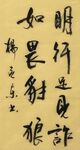 明行足見詐
如畏豺狼
楊
書